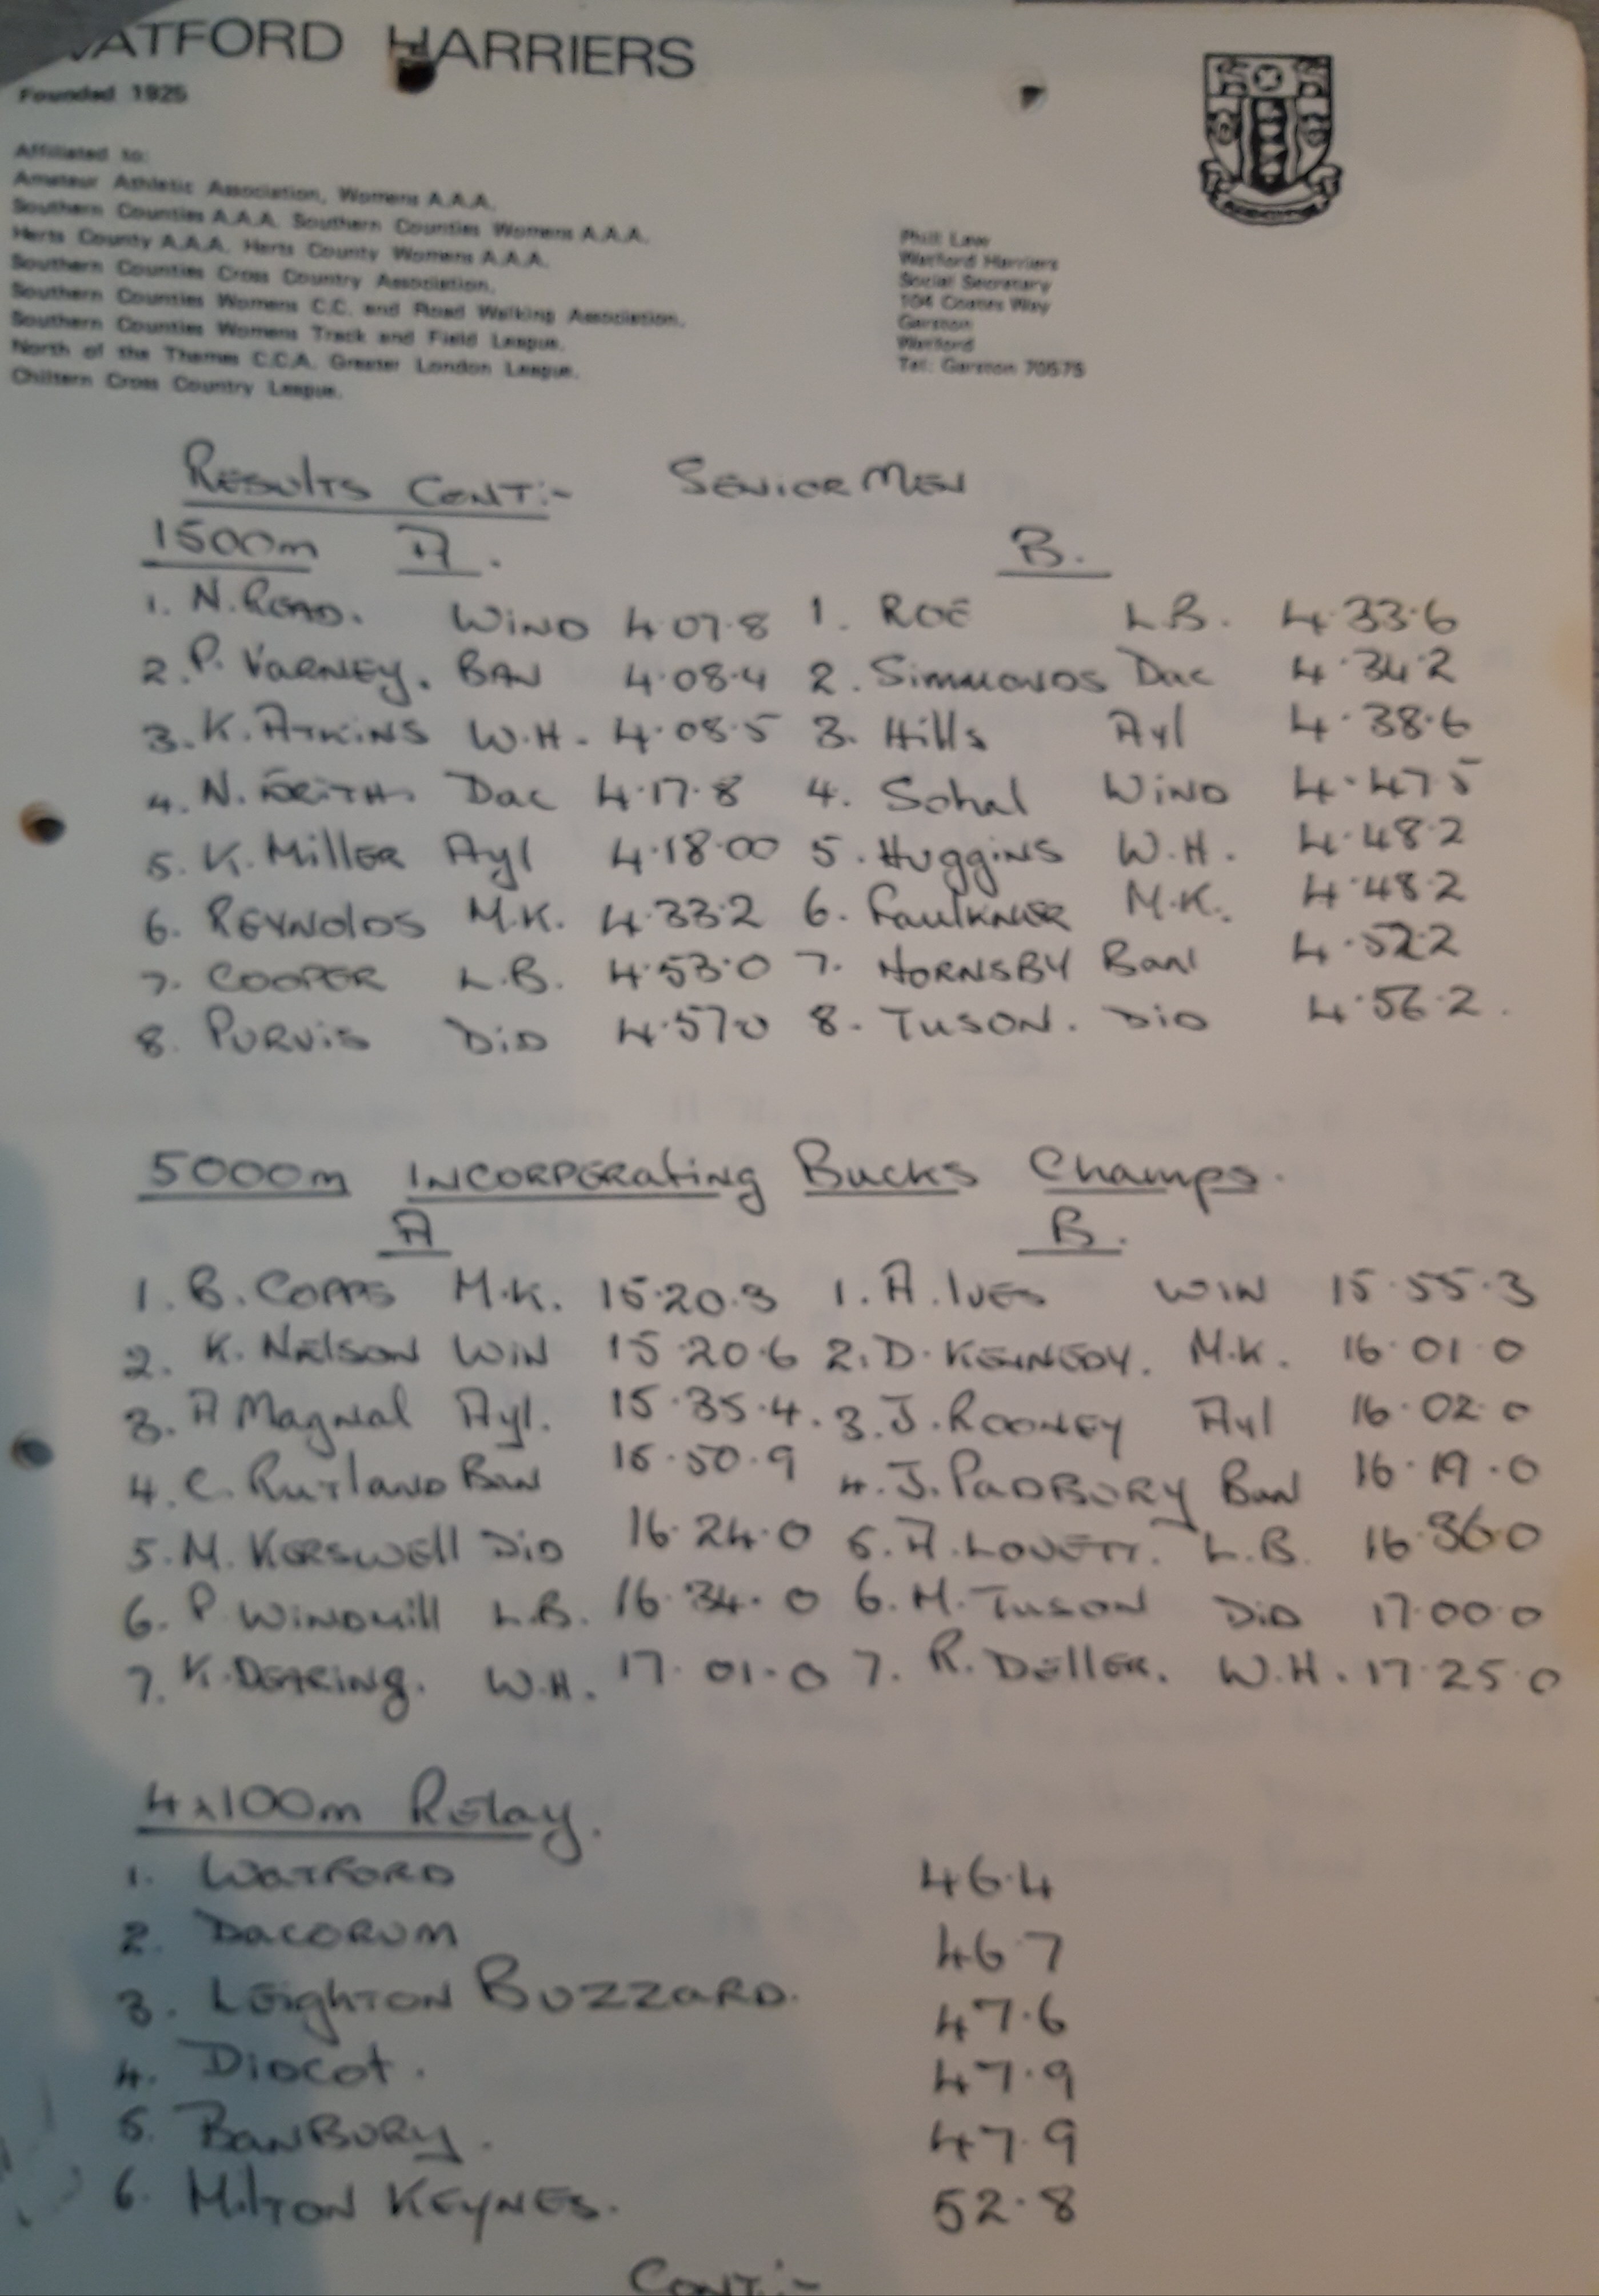 WATFORD HARRIERS
Founded 1925
Affiliated to:
Amateur Athletic Association, Womens A.A.A.
Southern Counties A.A.A. Southern Counties Womens A.A.A.
Herts County A.A.A. Herts County Womens A.A.A.
Southern Counties Cross Country Association.
Southern Counties Womens C.C. and Road Walking Association.
Southern Counties Womens Track and Field League.
North of the Thames C.C.A. Greater London League.
Chiltern Cross Country League.
Phill Law
Watford Harriers
Social Secretary
104 Coates Way
Garston
Watford
Tel: Garston 70575
RESULTS CONT:- SENIOR MEN
1500m A. B.
1. N. READ. WIND 4.07.8 1. ROE L.B. 4.33.6
2. P. VARNEY. BAN 4.08.4 2. Simmonds Dac 4.34.2
3. K. ATKINS W.H. 4.08.5 3. Hills Ayl 4.38.6
4. N. FRITH. Dac 4.17.8 4. Sohal WIND 4.47.5
5. K. MillER Ayl 4.18.00 5. HuggiNS W.H. 4.48.2
6. REYNOlDS M.K. 4.33.2 6. FAulKNER M.K. 4.48.2
7. COOPER L.B. 4.53.0 7. HORNSBY Ban 4.52.2
8. PURVIS DID 4.57.0 8. TUSON. DID 4.56.2.
5000m INCORPERAting Bucks Champs.
A B.
1. B. COPPS M.K. 15.20.3 1. A. IVES WIN 15.55.3
2. K. NELSON WIN 15.20.6 2. D. KENNEDY. M.K. 16.01.0
3. A Magnal Ayl. 15.35.4. 3. J. ROONEY Ayl 16.02.0
4. C. RUTLAND BAN 15.50.9 4. J. PADBURY Ban 16.19.0
5. M. KERSWEll DID 16.24.0 5. A. LOVETT. L.B. 16.36.0
6. P. WINDMill L.B. 16.34.0 6. M. TUSON DID 17.00.0
7. K. DEARINg. W.H. 17.01.0 7. R. DEllER. W.H. 17.25.0
4x100m RElay.
1. WATFORD 46.4
2. DACORUM 46.7
3. LEIghTON BUZZARD. 47.6
4. DIDCOt. 47.9
5. BANBURY. 47.9
6. MilTON KEYNES. 52.8
CONT:-